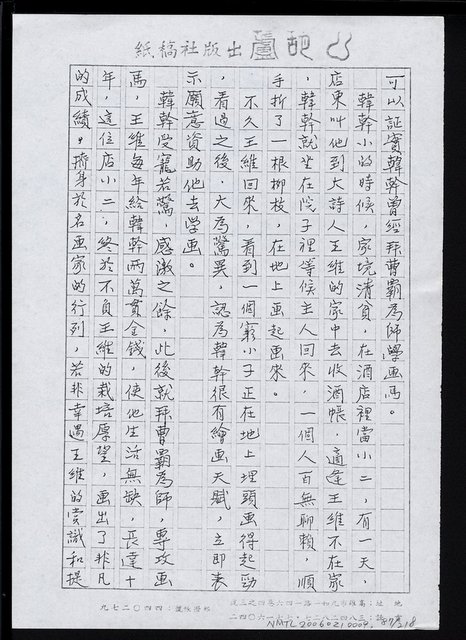 紙稿社版出蘆葫山
可以証實韓幹曾經拜曹霸為師學画馬。
韓幹小的時候，家境清貧，在酒店裡當小二，有一天，
店東叫他到大詩人王維的家中去收酒帳，適逢王維不在家
，韓幹就坐在院子裡等候主人回來，一個人百無聊賴，順
手折了一根柳枝，在地上画起画來。
不久王維回來，看到一個窮小子正在地上埋頭画得起勁
，看過之後，大為驚異，認為韓幹很有繪画天賦，立即表
示願意資助他去学画。
韓幹受寵若驚，感激之餘，此後就拜曹霸為師，專攻画
馬，王維每年給韓幹兩萬貫金錢，使他生活無缺，長達十
年，這位店小二，終於不負王維的栽培厚望，画出了非凡
的成績，擠身於名画家的行列，若非幸遇王維的賞識和提
地　址：高雄市九和一路一四六巷四之三號
NMTL20060210004